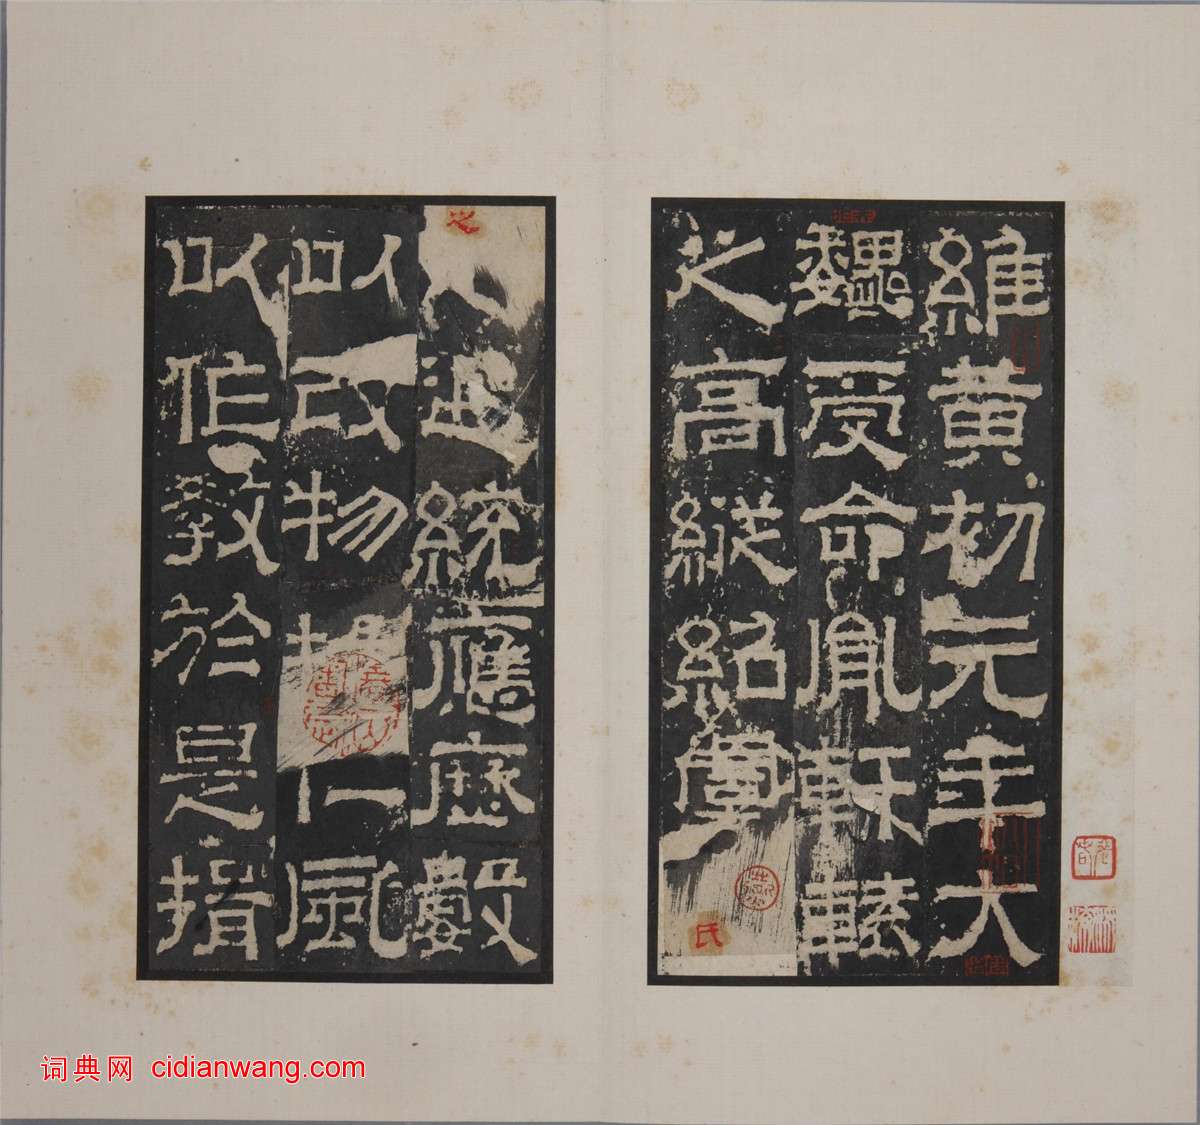 維黃初元年大
魏受命胤軒轅
之高縱紹虞
氏
之
遐統應曆數
以改物揚仁風
以作教於是揖
词典网 cidianwang.com